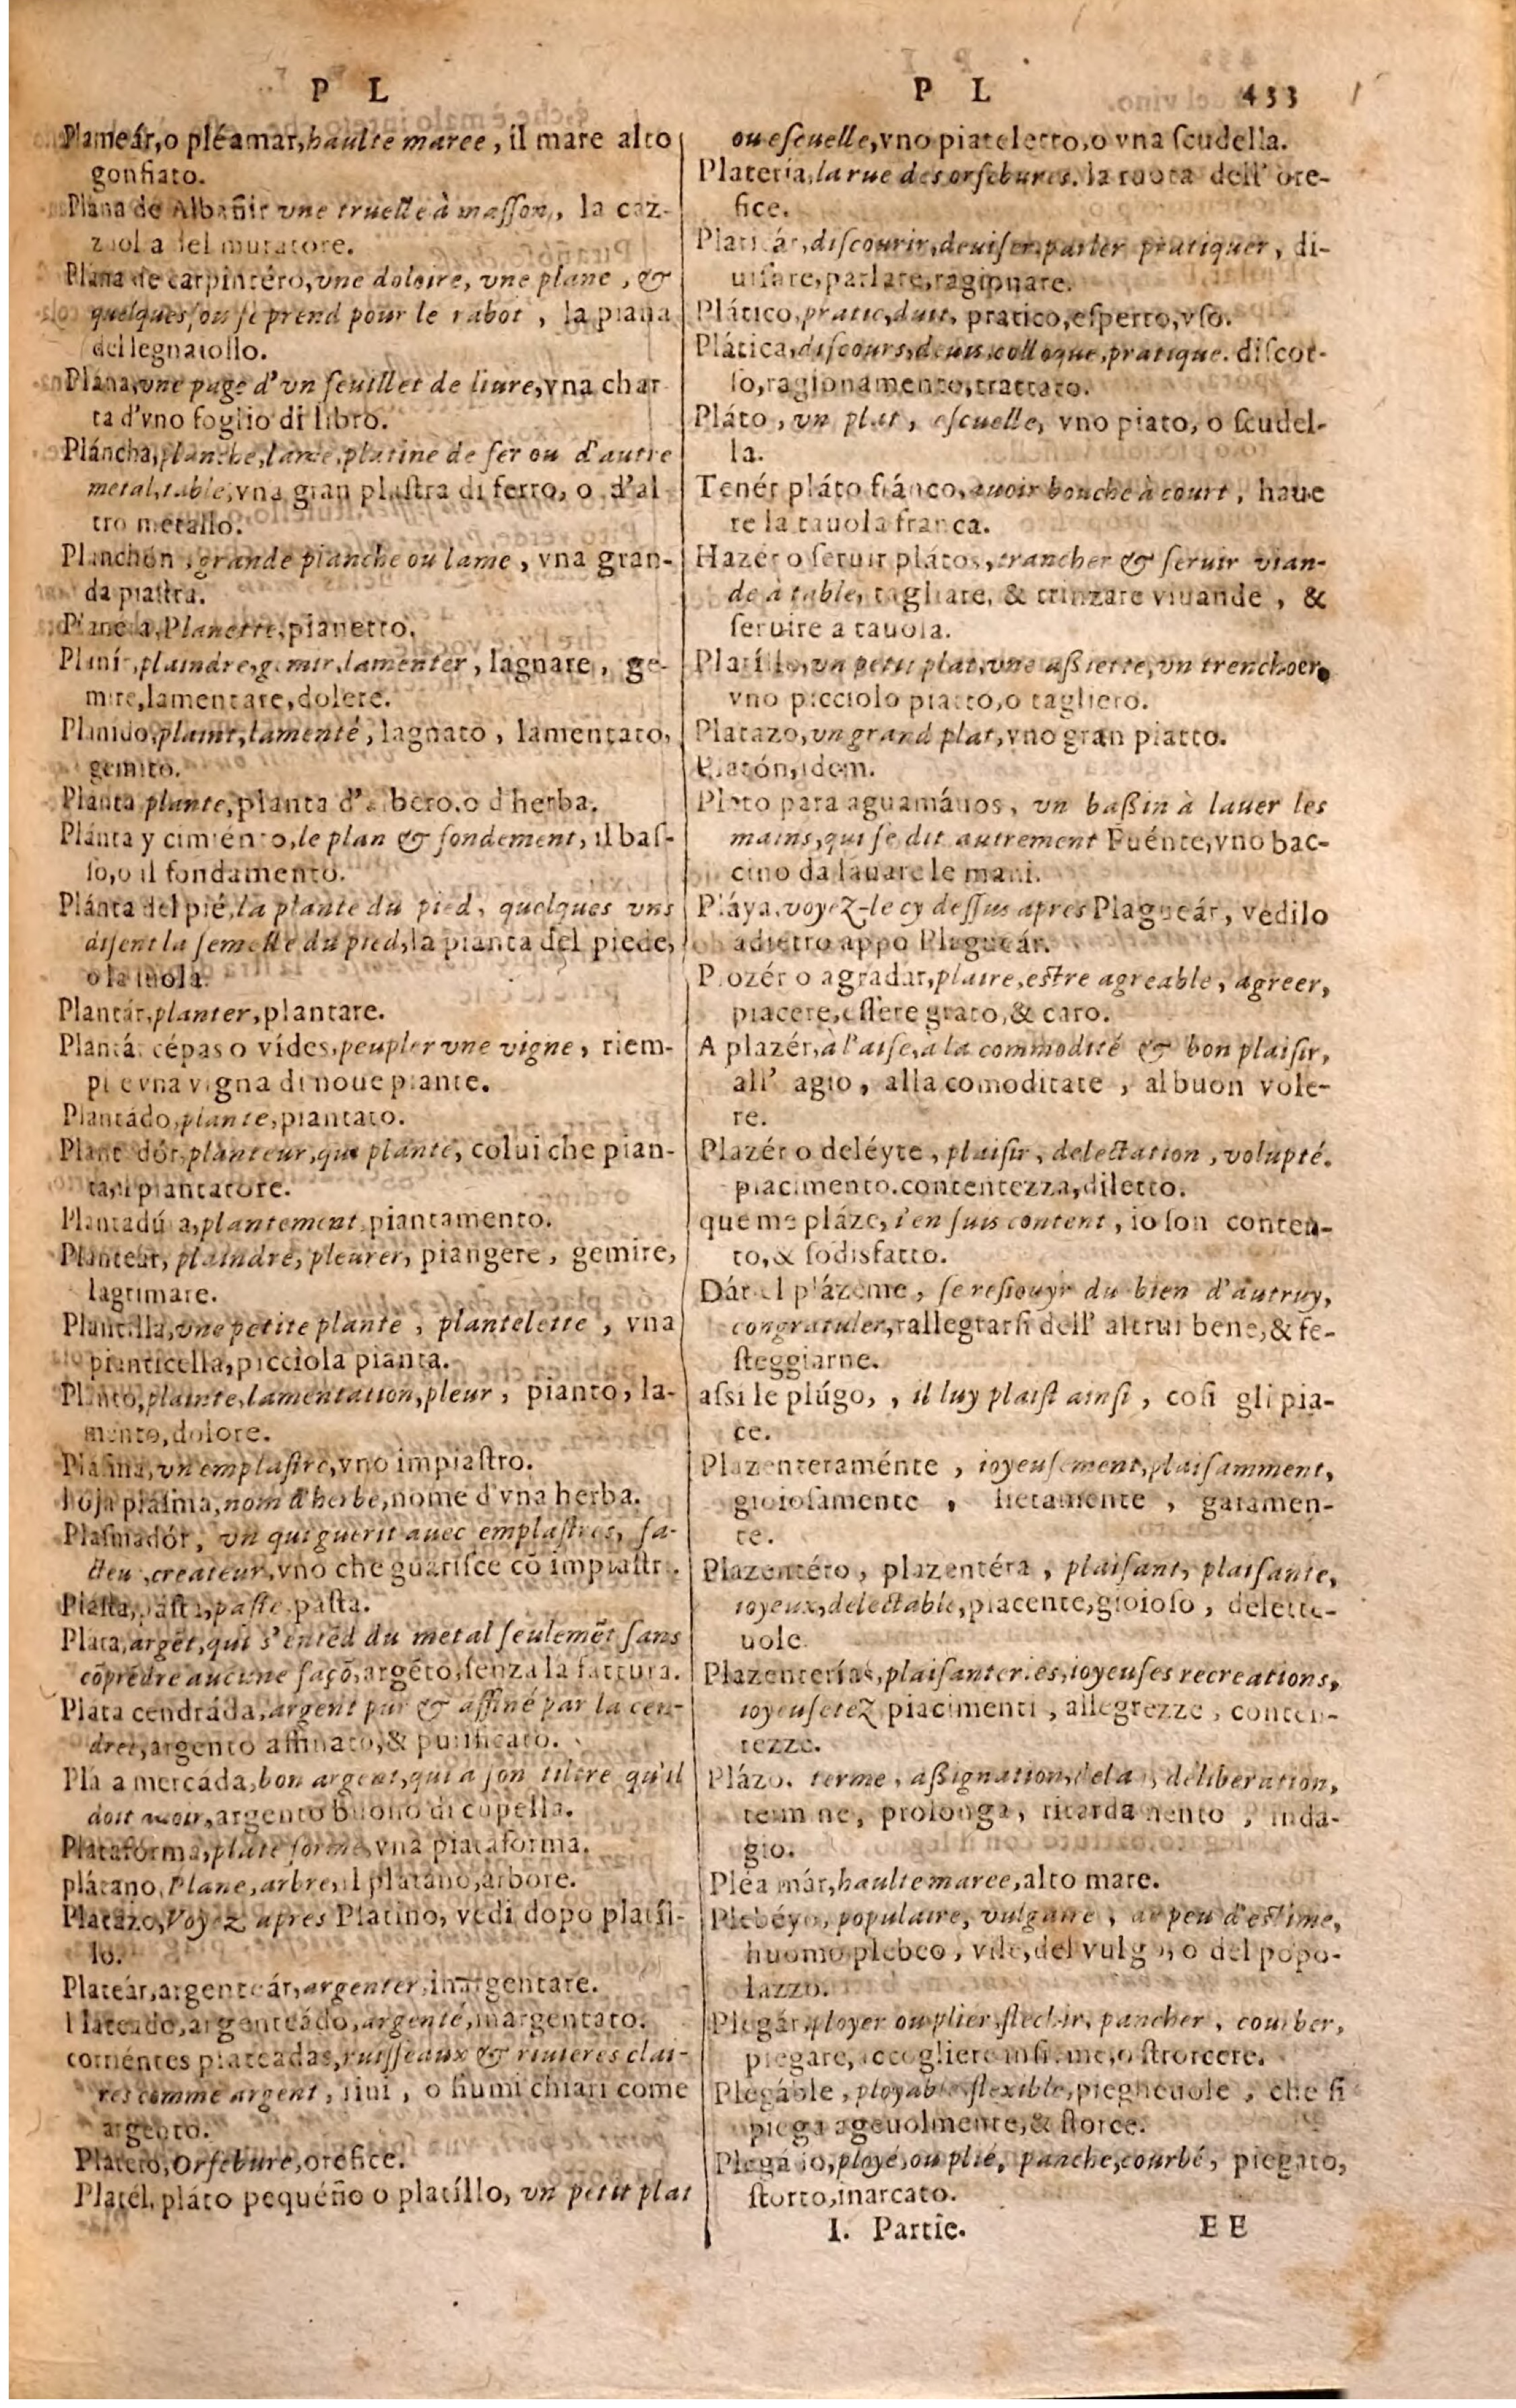 P L
Plameár, o pléamar, haulte maree, il mare alto
gonfiato.
Plana de Albañir vne truelle à masson, la caz-
zuola del muratore.
Plana de carpintéro, vne doloire, vne plane, &
quelquesfou se prend pour le rabot, la piana
del legnaiollo.
Plána, vne page d'vn feuillet de liure, vna char
ta d'vno foglio di libro.
Pláncha, planche, lame, platine de fer ou d'autre
metal, table, vna gran plastra di ferro, o d'al
tro metallo.
Planchón, grande planche ou lame, vna gran-
da piastra.
Planeta, Planette, pianetto.
Planír, plaindre, gemir, lamenter, lagnare, ge-
mire, lamentare, dolere.
Planido, plaint, lamenté, lagnato, lamentato,
gemito.
Planta plante, pianta d'albero, o d'herba.
Plánta y cimiénto, le plan & fondement, il bas-
so, o il fondamento.
Plánta del pié, la plante du pied, quelques vns
disent la semelle du pied, la pianta del piede,
o la suola.
Plantár, planter, plantare.
Plantár cépas o vídes, peupler vne vigne, riem-
pire vna vigna di noue piante.
Plantádo, plante, piantato.
Plantadór, planteur, qui plante, colui che pian-
ta, il piantatore.
Plantadúra, plantement, piantamento.
Planteár, plaindre, pleurer, piangere, gemire,
lagrimare.
Plantilla, vne petite plante, plantelette, vna
pianticella, picciola pianta.
Plánto, plainte, lamentation, pleur, pianto, la-
mento, dolore.
Plasma, vn emplastre, vno impiastro.
hoja plasma, nom d'herbe, nome d'vna herba.
Plasmadór, vn qui guerit auec emplastres, fa-
cteur, createur, vno che guarisce cō impiastri.
Plásta, pásta, paste, pasta.
Plata, argēt, qui s'entēd du metal seulemēt sans
cōprēdre aucune façō, argēto, senza la fattura.
Plata cendráda, argent pur & affiné par la cen-
dree, argento affinato, & purificato.
Plata mercáda, bon argent, qui a son tiltre qu'il
doit auoir, argento buono di cupella.
Platafórma, plate forme, vna piataforma.
plátano, Plane, arbre, il platano, arbore.
Platazo, Voyez apres Platino, vedi dopo platíl-
lo.
Plateár, argenteár, argenter, inargentare.
Plateado, argenteádo, argenté, inargentato.
corriéntes plateadas, ruisseaux & riuieres clai-
res comme argent, riui, o fiumi chiari come
argento.
Platero, Orfebure, orefice.
Platél, pláto pequéño o platíllo, vn petit plat
P L 433
ou escuelle, vno piateletto, o vna scudella.
Plateria, la rue des orfebures. la ruota dell' ore-
fice.
Platicár, discourir, deuiser, parler pratiquer, di-
uisare, parlare, ragionare.
Plático, pratic, duit, pratico, esperto, vso.
Plática, discours, deuis, colloque, pratique. discor-
so, ragionamento, trattato.
Pláto, vn plat, escuelle, vno piato, o scudel-
la.
Tenér pláto fránco, auoir bouche à court, haue
re la tauola franca.
Hazér o seruir plátos, trancher & seruir vian-
de à table, tagliare, & trinzare viuande, &
seruire a tauola.
Platíllo, vn petit plat, vne assiette, vn trenchoer,
vno picciolo piatto, o tagliero.
Platazo, vn grand plat, vno gran piatto.
Platón, idem.
Plato para aguamános, vn bassin à lauer les
mains, qui se dit autrement Fuénte, vno bac-
cino da lauare le mani.
Pláya, voyez-le cy dessus apres Plagueár, vedilo
adietro appo Plagueár.
Plozér o agradar, plaire, estre agreable, agreer,
piacere, essere grato, & caro.
A plazér, à l'aise, à la commodité & bon plaisir,
all' agio, alla comoditate, al buon vole-
re.
Plazér o deléyte, plaisir, delectation, volupté.
piacimento. contentezza, diletto.
que me pláze, i'en suis content, io son conten-
to, & sodisfatto.
Dár el plázeme, se resiouyr du bien d'autruy,
congratuler, rallegrarsi dell' altrui bene, & fe-
steggiarne.
assi le plúgo,, il luy plaist ainsi, cosi gli pia-
ce.
Plazenteraménte, ioyeusement, plaisamment,
gioiosamente, lietamente, gaiamen-
te.
Plazentéro, plazentéra, plaisant, plaisante,
ioyeux, delectable, piacente, gioioso, delette-
uole.
Plazenterías, plaisanteries, ioyeuses recreations,
ioyeusetez, piacimenti, allegrezze, conten-
tezze.
Plázo. terme, assignation, delai, deliberation,
termine, prolonga, ritardamento, inda-
gio.
Pléa már, haulte maree, alto mare.
Plebéyo, populaire, vulgaire, de peu d'estime,
huomo plebeo, vile, del vulgo, o del popo-
lazzo.
Plegár, ployer ou plier, flechir, pancher, courber,
piegare, accogliere insieme, o strorcere.
Plegáble, ployable, flexible, pieghеuole, che si
piega ageuolmente, & storce.
Plegádo, ployé, ou plié, panche, courbé, piegato,
storto, inarcato.
I. Partie. EE